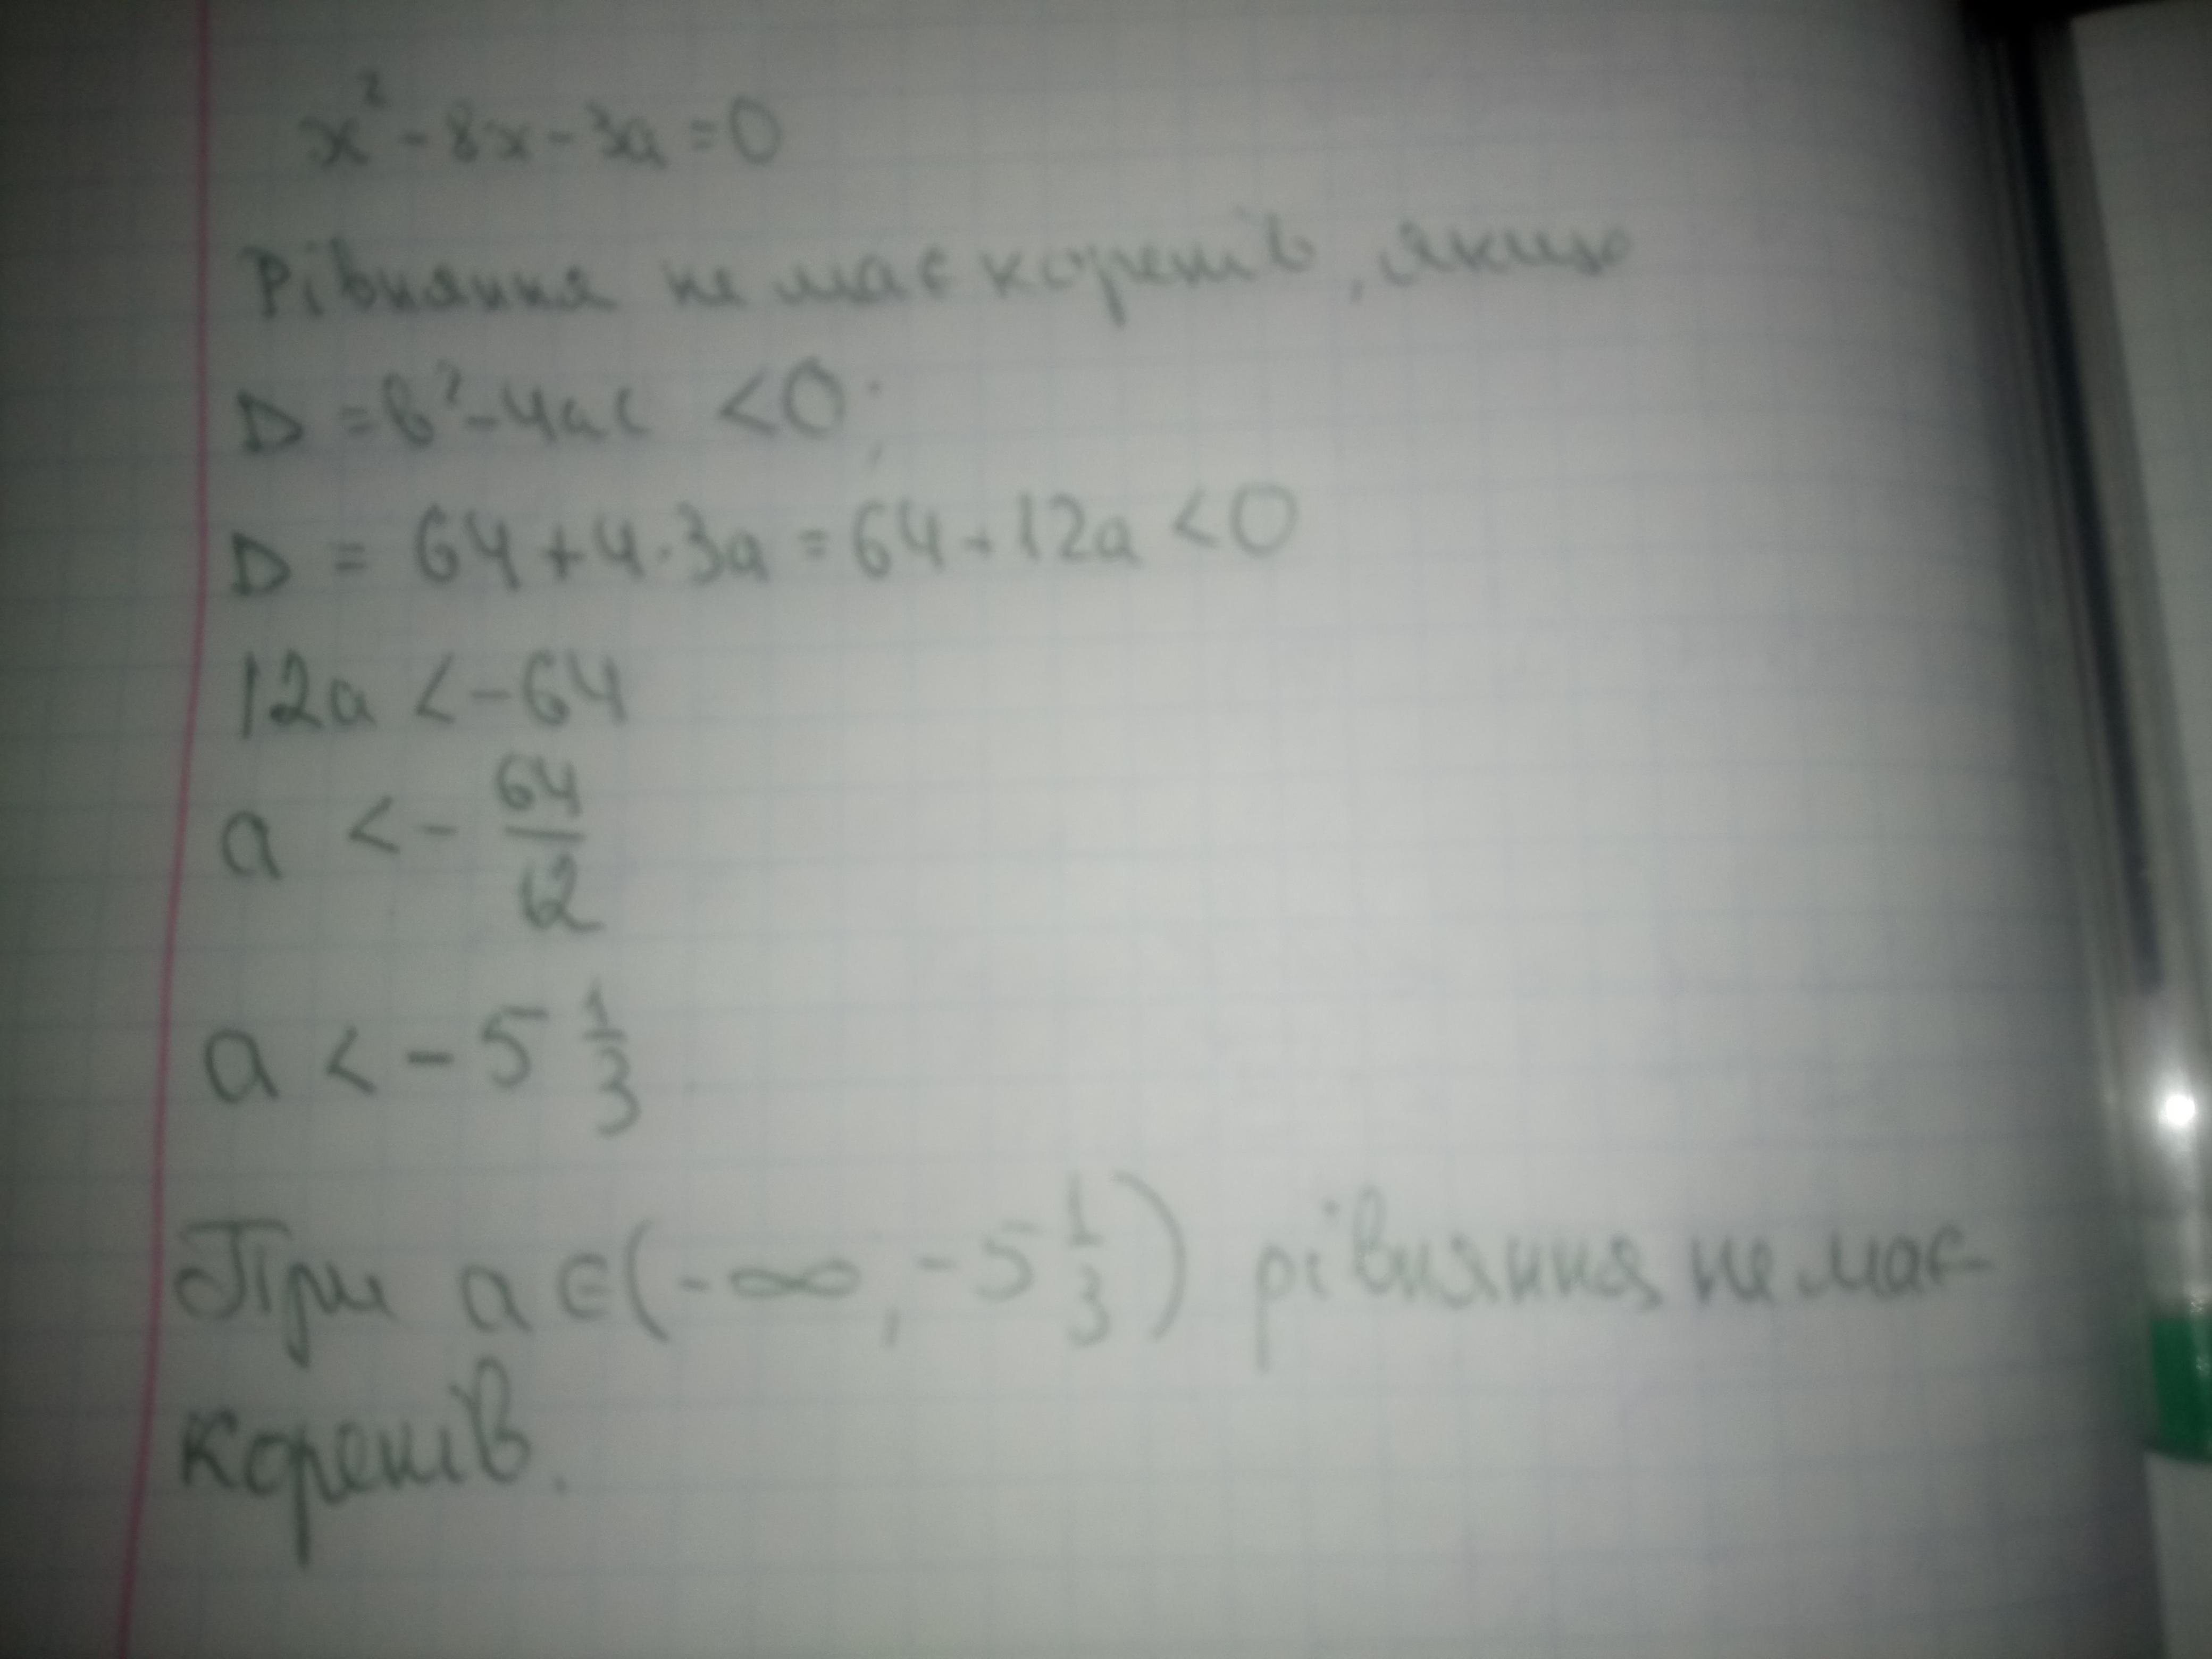 x² - 8x - 3a = 0
Рівняння не має коренів, якщо
D = b² - 4ac < 0;
D = 64 + 4·3a = 64 + 12a < 0
12a < -64
a < - 64/12
a < - 5 1/3
При a ∈ (-∞, -5 1/3) рівняння не має
коренів.